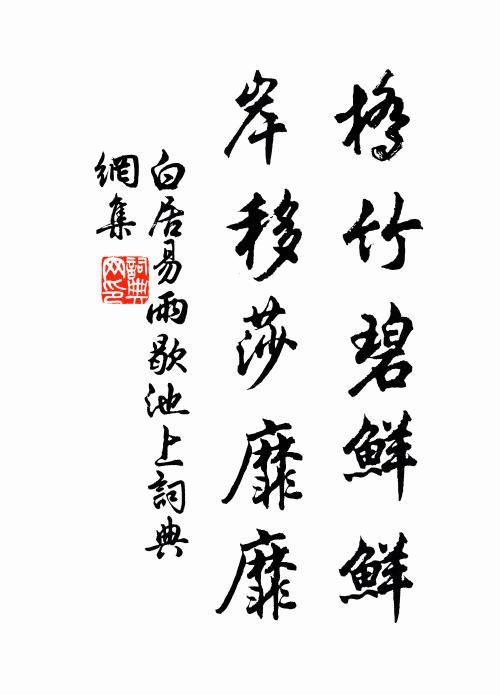 橋竹碧鮮鮮
岸移莎靡靡
白居易雨歇池上詞典
網集
詞典
网印